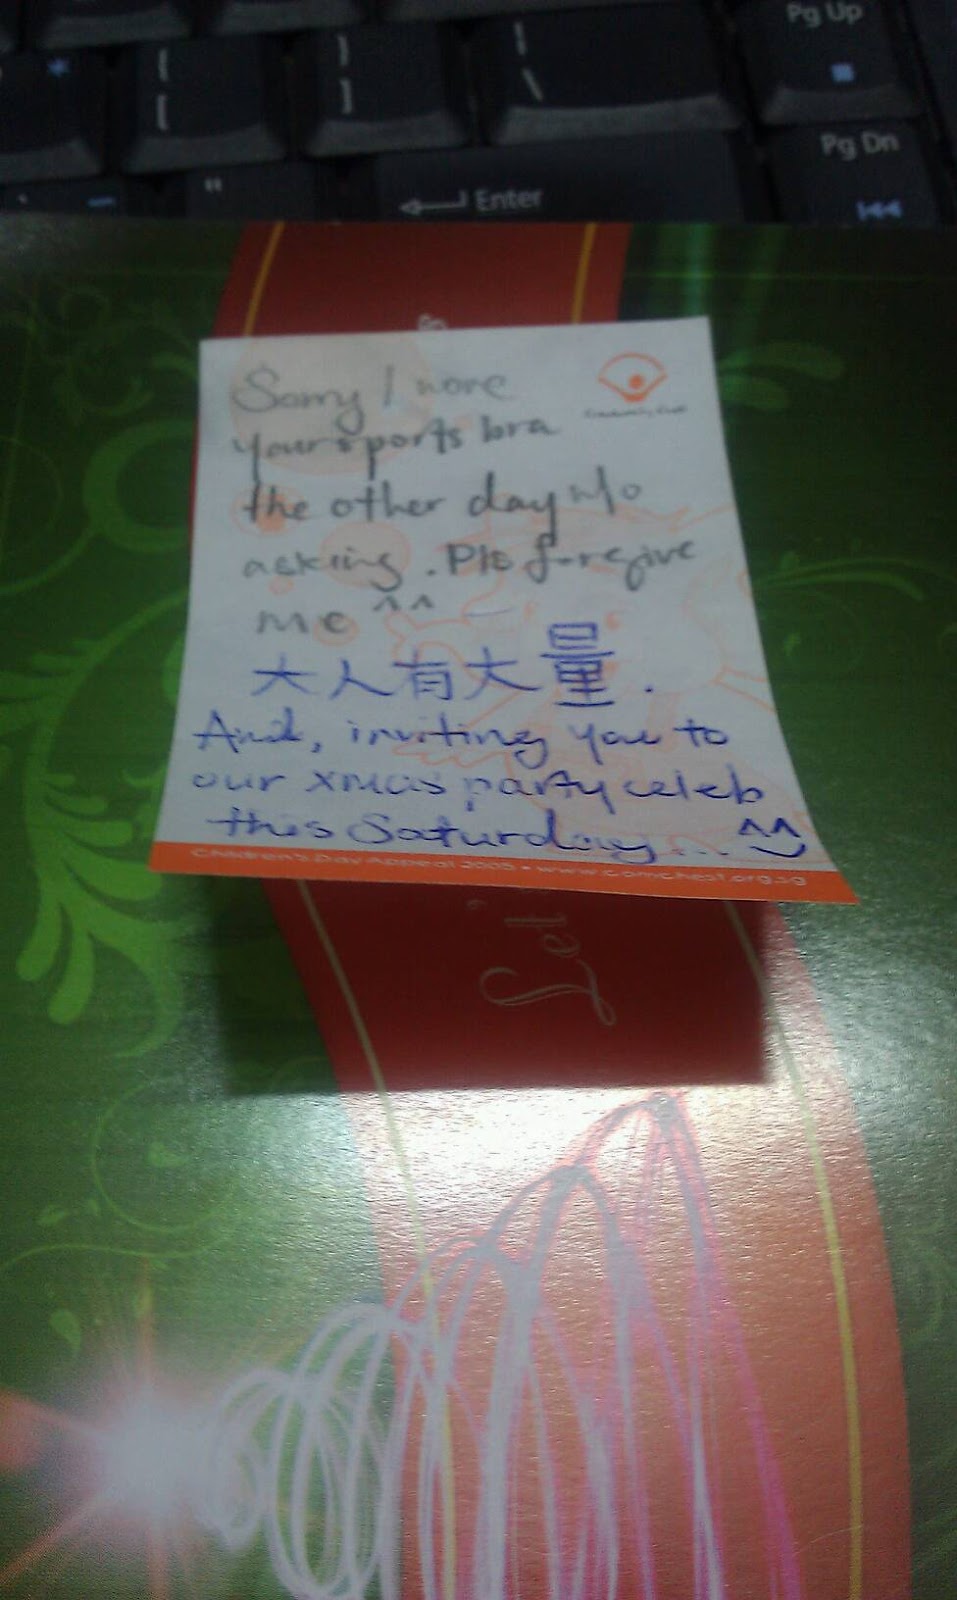 Pg Up
* { } |
[ ] \
Pg Dn
" Enter
Sorry I wore
your sports bra
the other day w/o
asking. Pls forgive
me ^^
大人有大量.
And, inviting you to
our xmas party celeb
this Saturday... ^^
Children's Day Appeal 2005 • www.comchest.org.sg
Let'